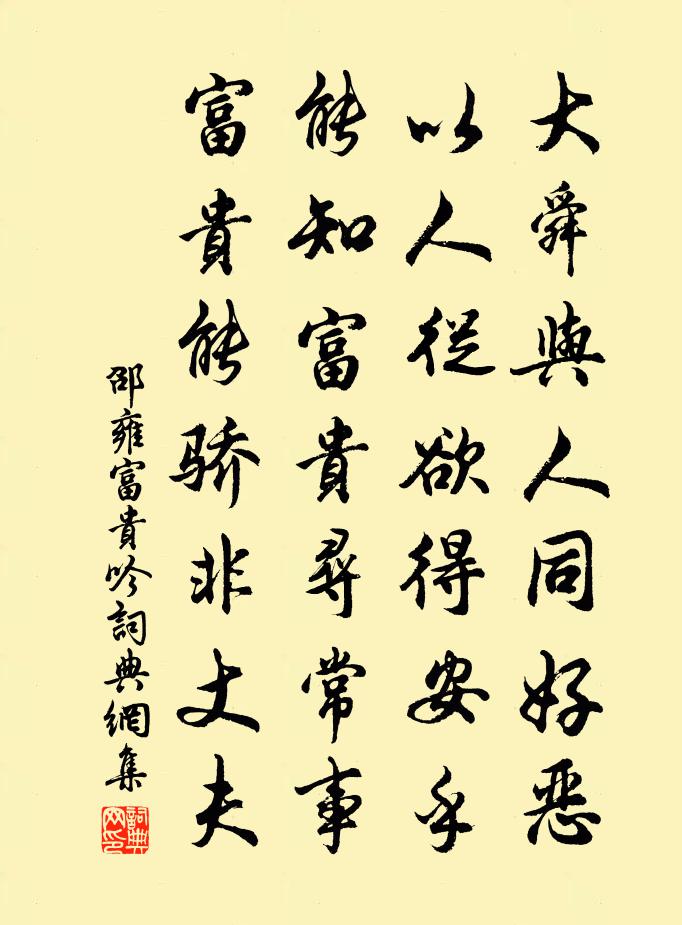 大舜與人同好惡
以人從欲得安乎
能知富貴尋常事
富貴能骄非丈夫
邵雍富貴吟詞典網集
詞典网印